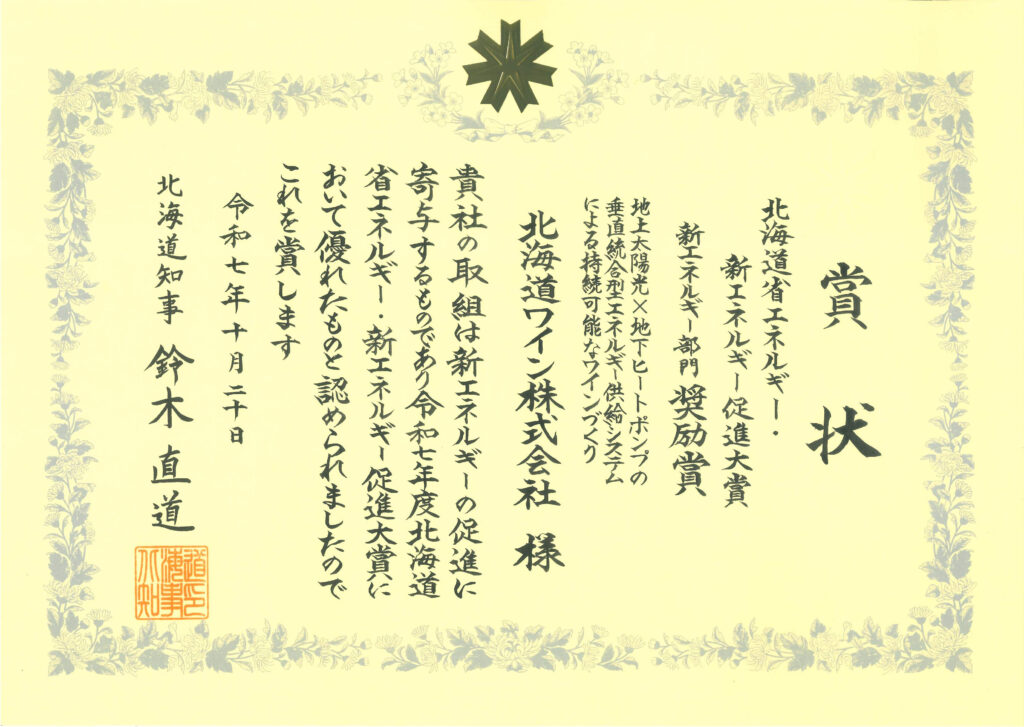 賞状
北海道省エネルギー・
新エネルギー促進大賞
新エネルギー部門 奨励賞
地上太陽光×地下ヒートポンプの
垂直統合型エネルギー供給システム
による持続可能なワインづくり
北海道ワイン株式会社 様
貴社の取組は新エネルギーの促進に
寄与するものであり令和七年度北海道
省エネルギー・新エネルギー促進大賞に
おいて優れたものと認められましたので
これを賞します
令和七年十月二十日
北海道知事 鈴木直道
北海道知事印